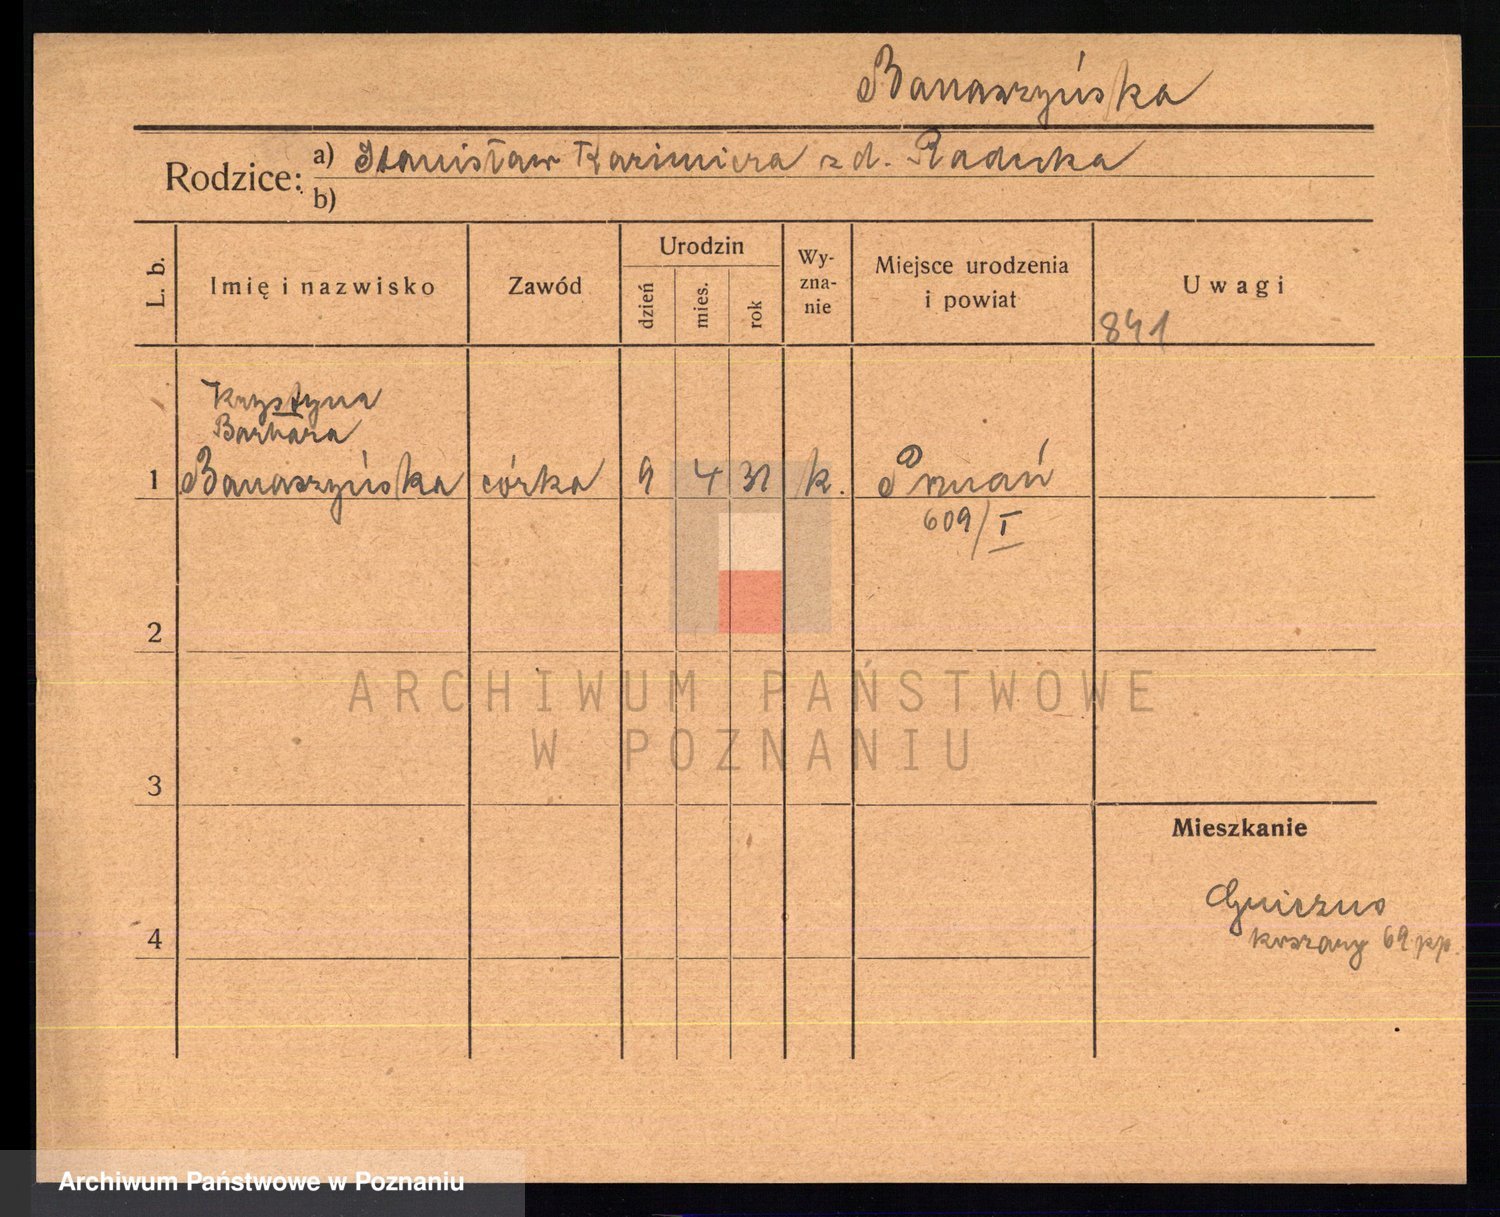 Banaszyńska
Rodzice:
a) Stanisław Kazimiera z d. Radecka
b)
L. b.
Imię i nazwisko
Zawód
Urodzin
dzień
mies.
rok
Wy-
zna-
nie
Miejsce urodzenia
i powiat
Uwagi
841
Krystyna
Barbara
1 Banaszyńska córka 9 4 31 k. Poznań
609/I
2
3
4
Mieszkanie
Gniezno
koszary 69 pp.
ARCHIWUM PAŃSTWOWE
W POZNANIU
Archiwum Państwowe w Poznaniu